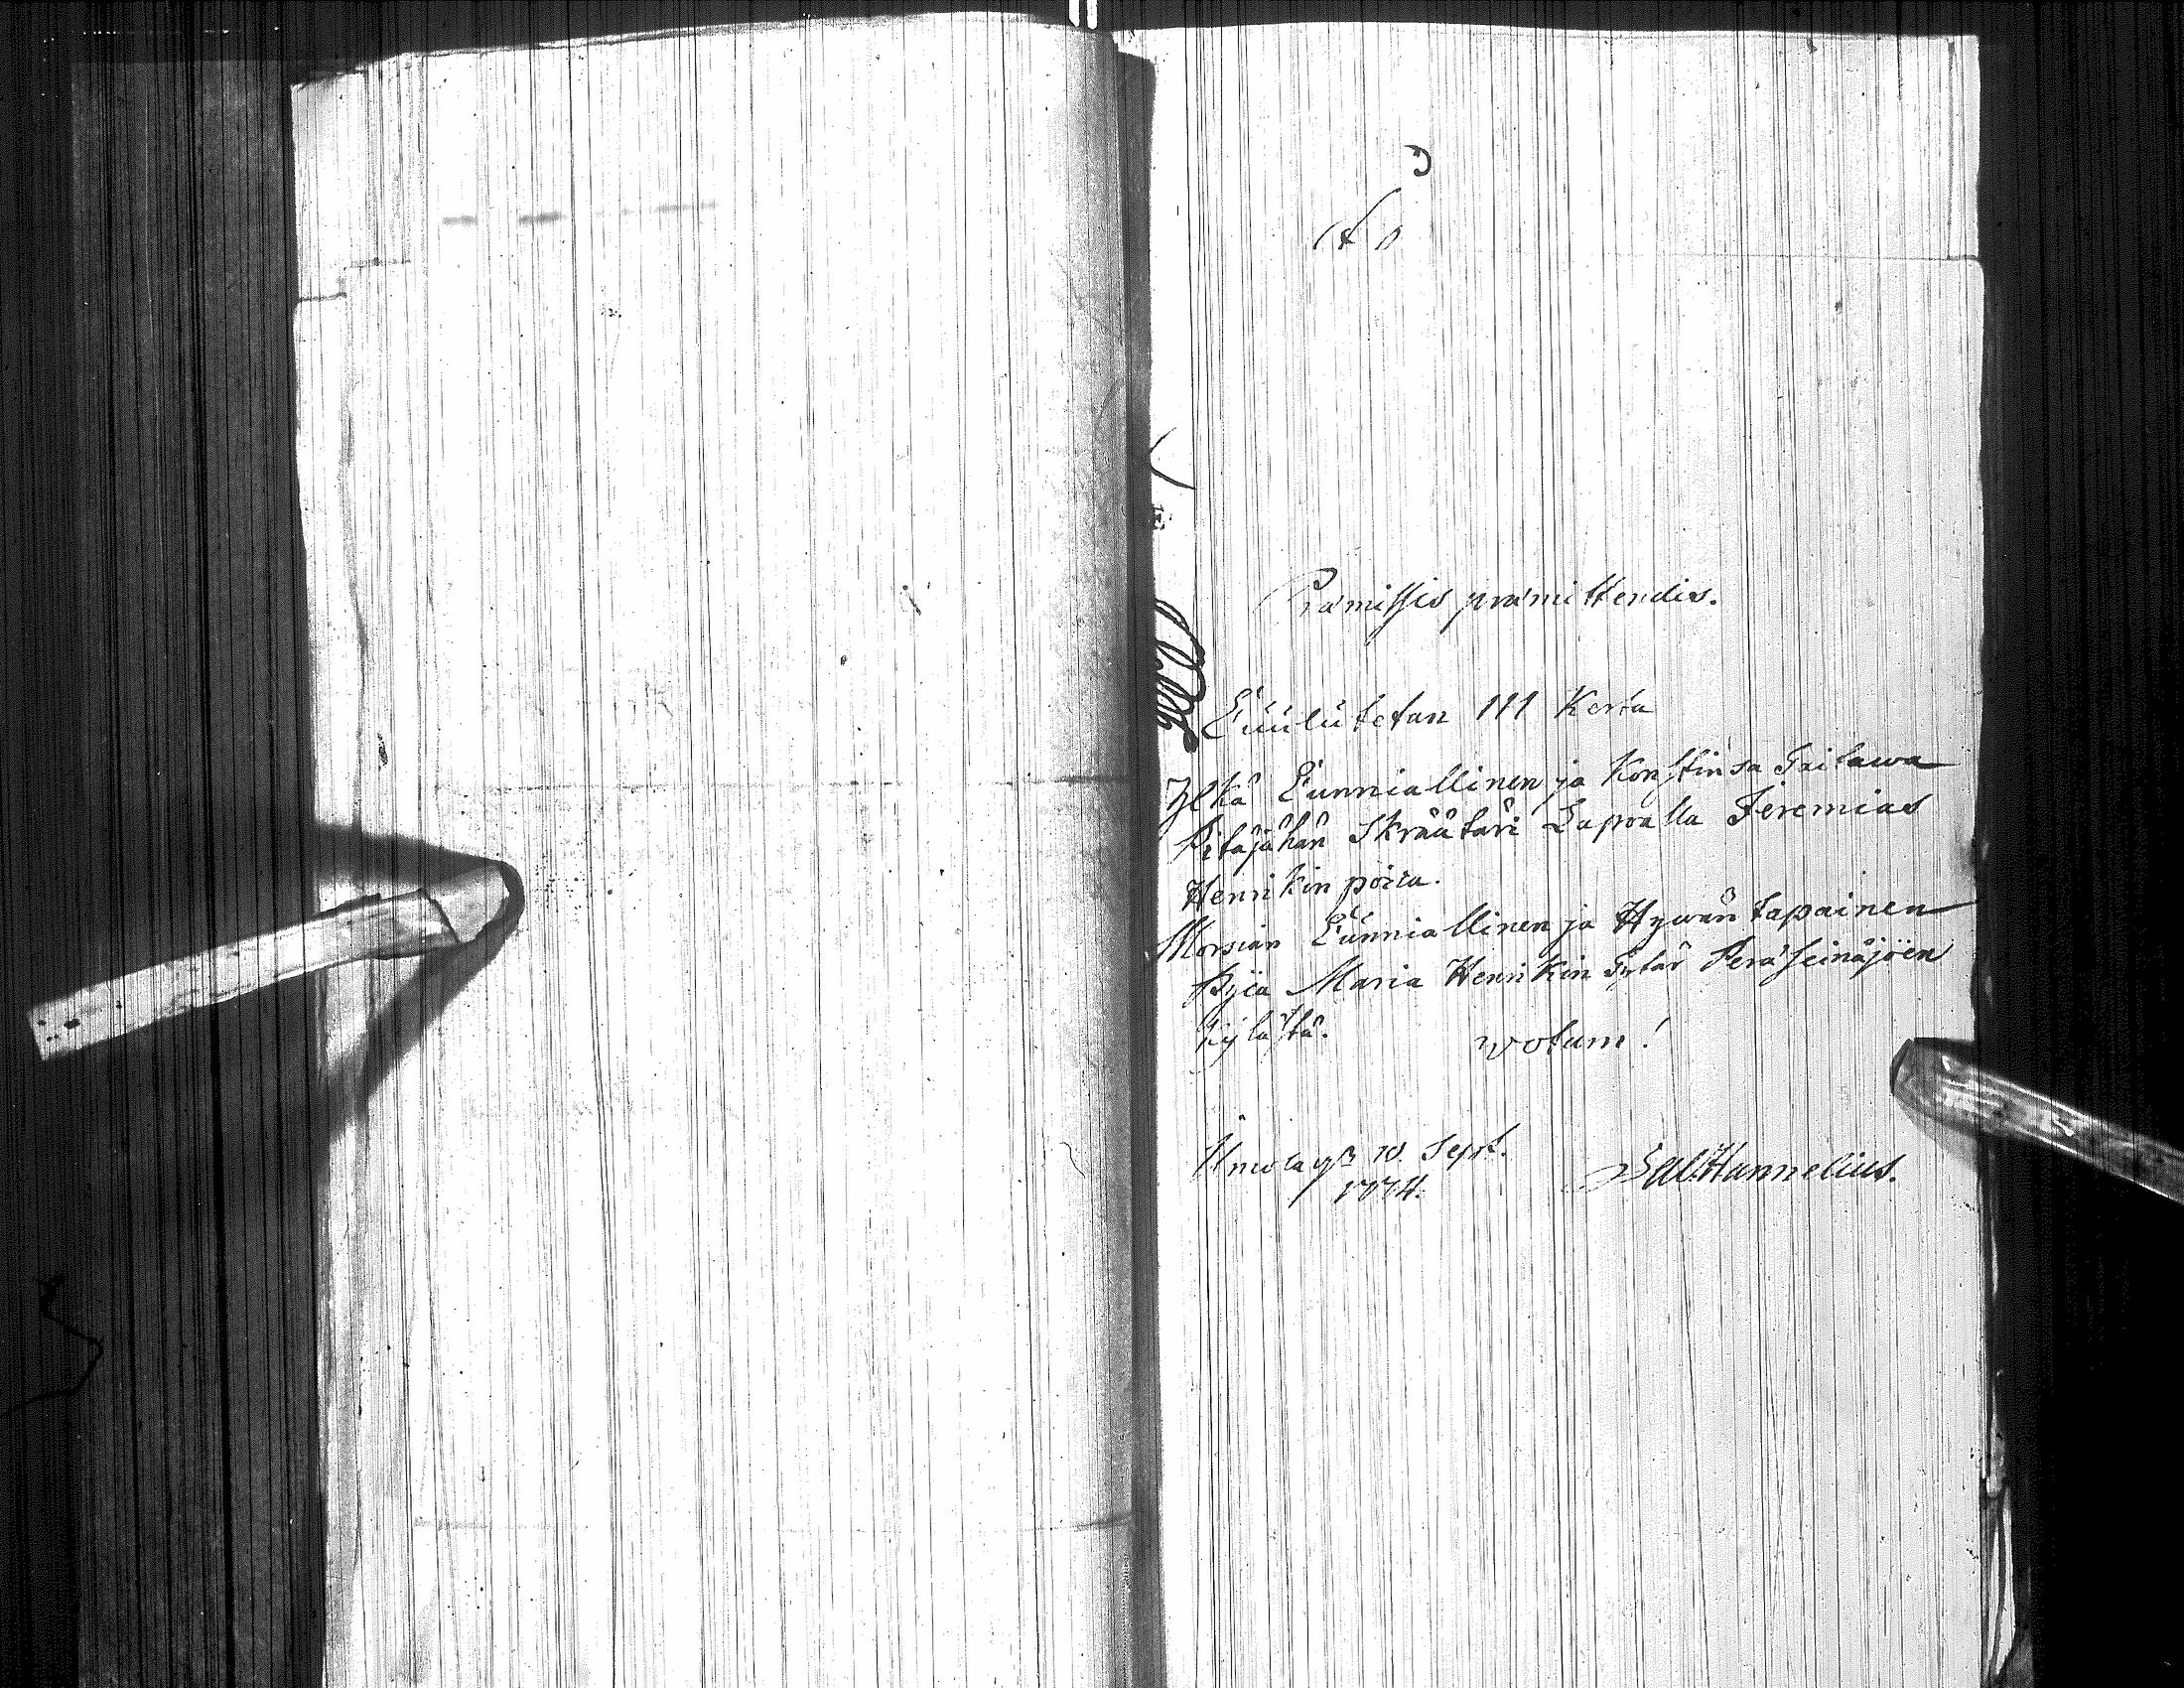 Præmissis præmittendis.
Cuulutetan III Kerta
Ylkä Cunniallinen ja Konstinsa Taitawa
Pitäjähän Skräätäri Lapoalla Jeremias
Henrikin poica.
Morsian Cunniallinen ja Hywäntapainen
Pijca Maria Henrikin Tytär Peräseinäjoen
kylästä.
wotum!
10. Sept.
1774.
Hannelius.